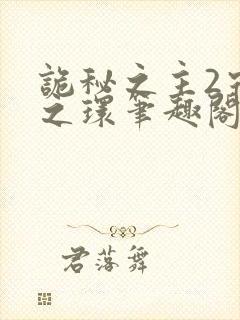 詭秘之主2宿
之環筆趣閣
君落舞